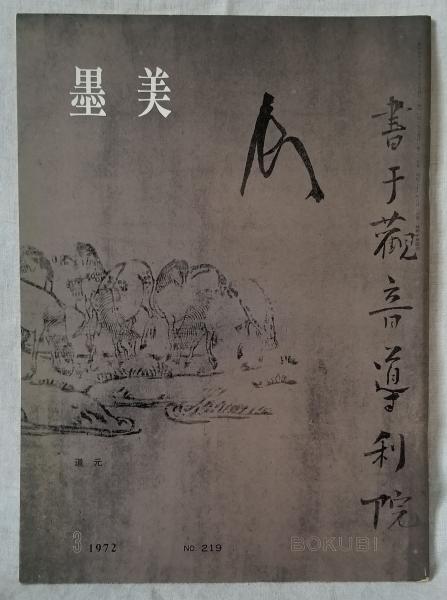 墨美
書于觀音導利院
道元
3 1972
NO. 219
BOKUBI